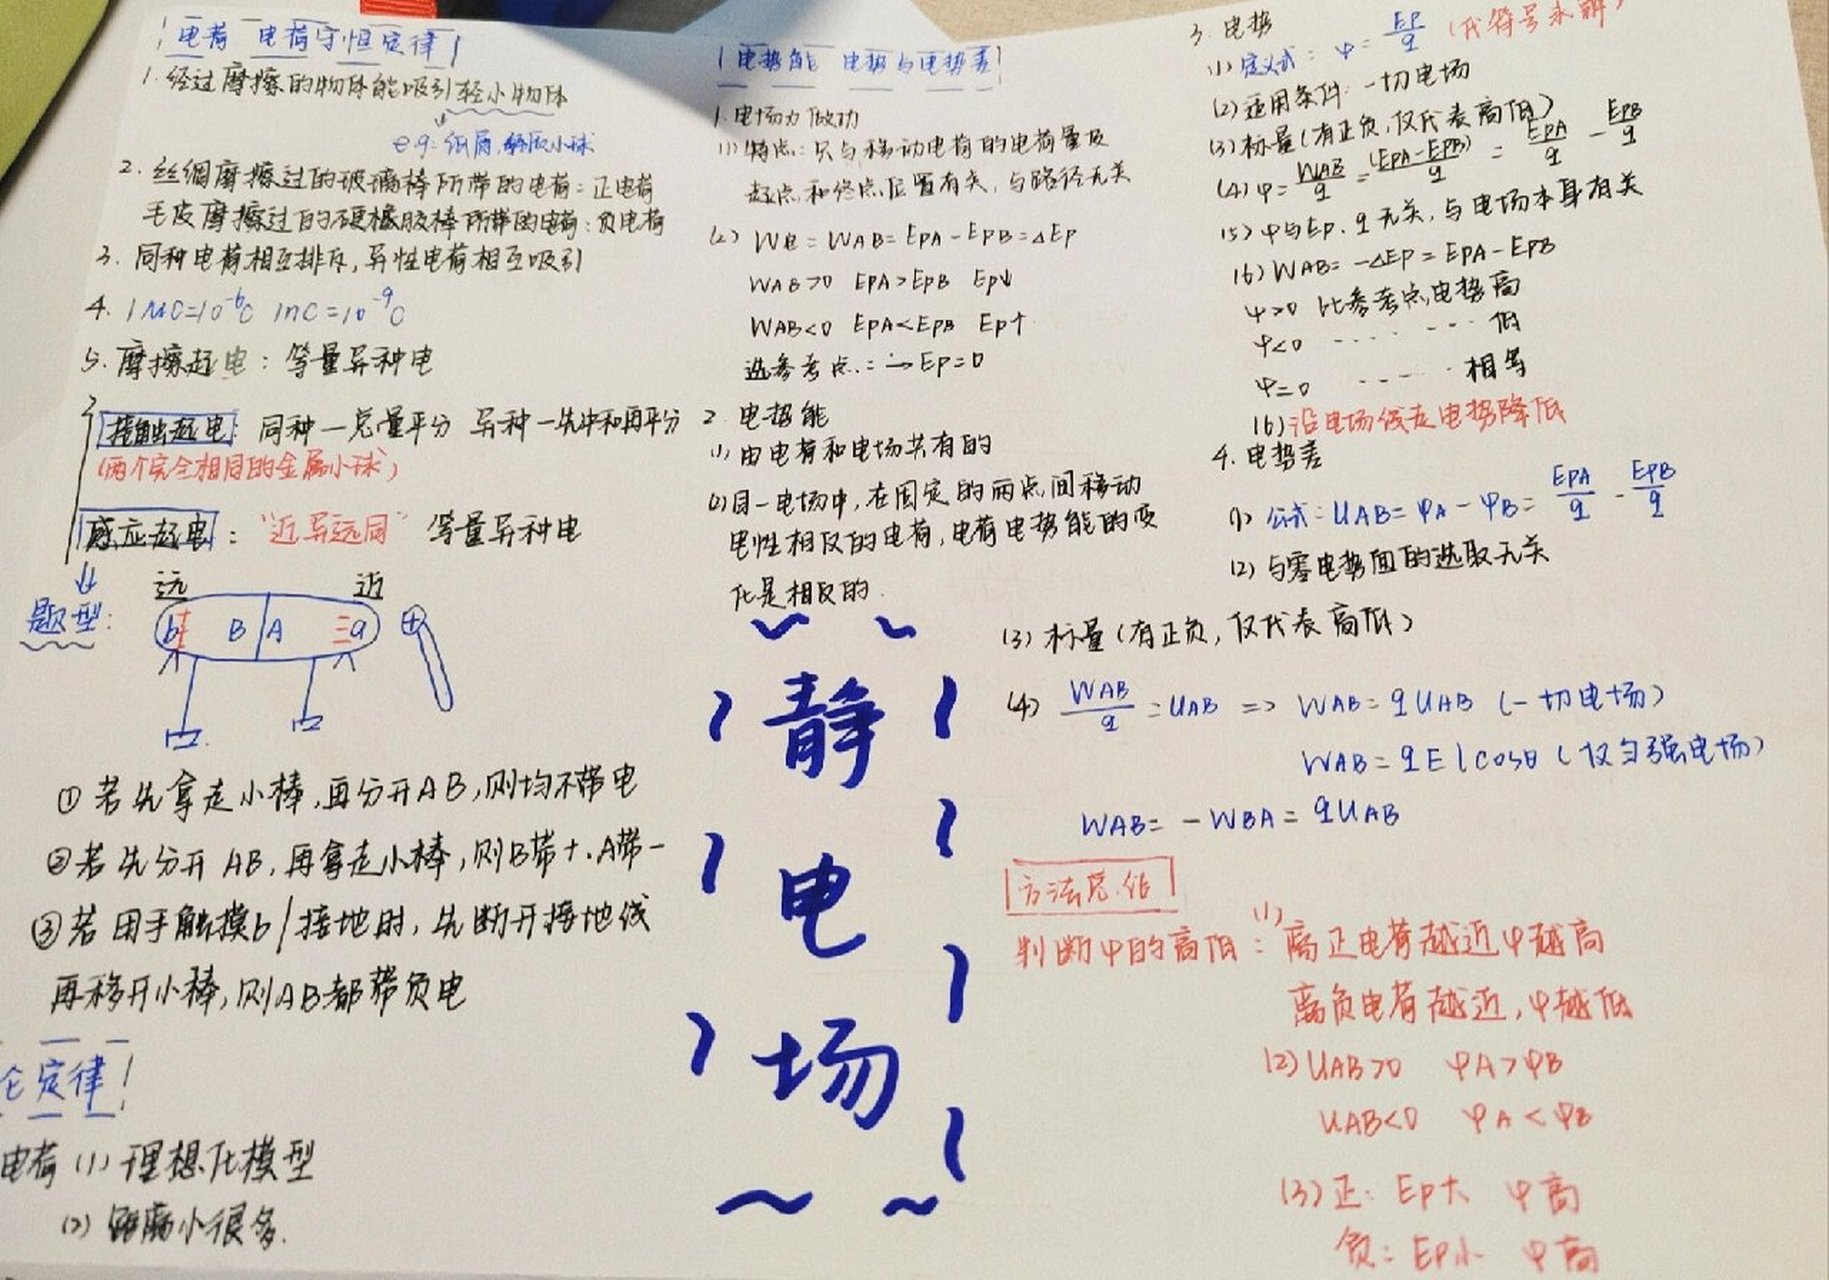 电荷 电荷守恒定律
1.经过摩擦的物体能吸引轻小物体
e.g:纸屑,轻质小球
2.丝绸摩擦过的玻璃棒所带的电荷:正电荷
毛皮摩擦过的硬橡胶棒所带的电荷:负电荷
3.同种电荷相互排斥,异性电荷相互吸引
4. 1μC=10⁻⁶C 1nC=10⁻⁹C
5.摩擦起电:等量异种电
接触起电:同种一总量平分 异种一先中和再平分
(两个完全相同的金属小球)
感应起电:"近异远同" 等量异种电
题型:
远 近
b B A a +
①若先拿走小棒,再分开AB,则均不带电
②若先分开AB,再拿走小棒,则B带+.A带-
③若用手触摸b/接地时,先断开接地线
再移开小棒,则AB都带负电
仑定律
电荷(1)理想化模型
(2)距离小很多.
电势能 电势与电势差
1.电场力做功
(1)特点:只与移动电荷的电荷量及
起点和终点位置有关,与路径无关
(2) W电=WAB=EPA-EPB=△EP
WAB>0 EPA>EPB EP↓
WAB<0 EPA<EPB EP↑
选参考点:→EP=0
2.电势能
(1)由电荷和电场共有的
(2)同一电场中,在固定的两点间移动
电性相反的电荷,电荷电势能的变
化是相反的.
静
电
场
3.电势
(1)定义式:φ=EP/q (代符号求解)
(2)适用条件:一切电场
(3)标量(有正负,仅代表高低)
(4)φ=WAB/q=(EPA-EPB)/q=EPA/q-EPB/q
(5)φ与EP.q无关,与电场本身有关
(6)WAB=-△EP=EPA-EPB
φ>0 比参考点,电势高
φ<0 ······低
φ=0 ······相等
(6)沿电场线走电势降低
4.电势差
(1)公式:UAB=φA-φB=EPA/q-EPB/q
(2)与零电势面的选取无关
(3)标量(有正负,仅代表高低)
(4) WAB/q=UAB => WAB=qUAB (一切电场)
WAB=qElcosθ(仅匀强电场)
WAB=-WBA=qUAB
方法总结
判断φ的高低:(1)离正电荷越近φ越高
离负电荷越近,φ越低
(2)UAB>0 φA>φB
UAB<0 φA<φB
(3)正:EP大 φ高
负:EP小 φ高